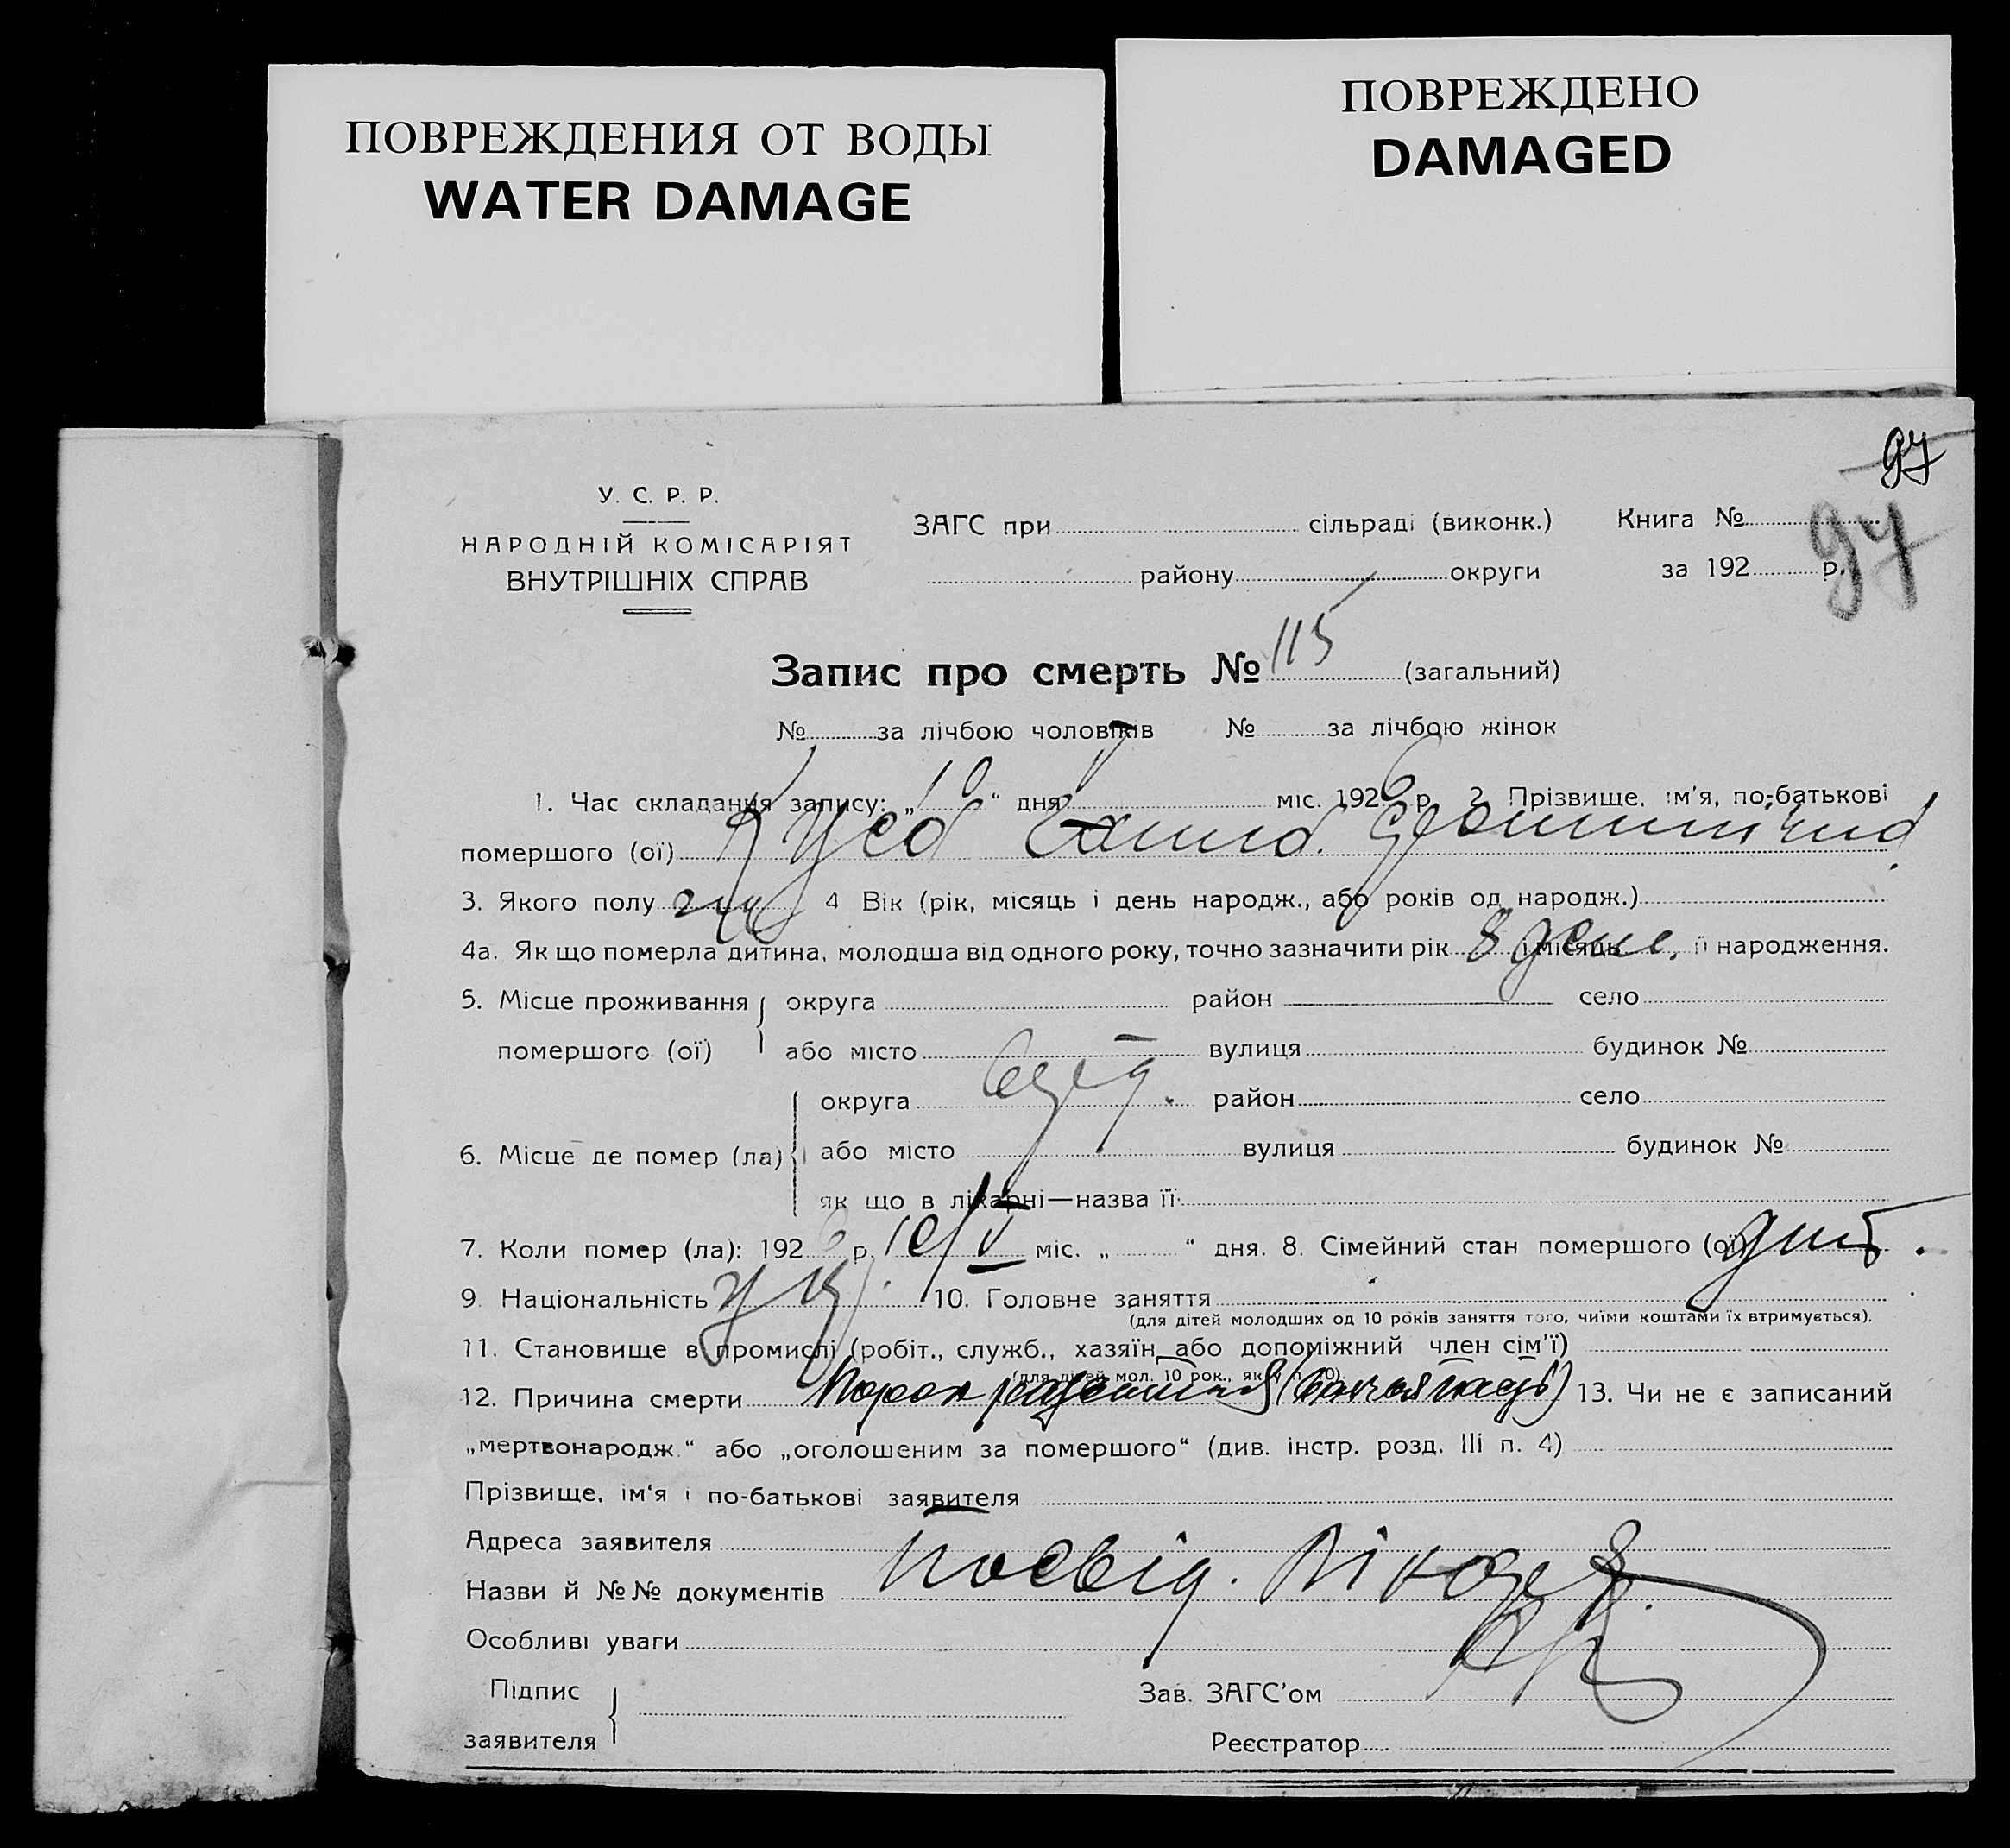 ПОВРЕЖДЕНИЯ ОТ ВОДЫ
WATER DAMAGE
ПОВРЕЖДЕНО
DAMAGED
97
97
У. С. Р. Р.
НАРОДНІЙ КОМІСАРІЯТ
ВНУТРІШНІХ СПРАВ
ЗАГС при сільраді (виконк.) Книга №
району округи за 192 р.
Запис про смерть № 115 (загальний)
№ за лічбою чоловіків № за лічбою жінок
1. Час складання запису: „10“ дня V міс. 1926 р. 2. Прізвище, ім'я, по-батькові
помершого (ої)
3. Якого полу 4 Вік (рік, місяць і день народж., або років од народж.)
4а. Як що померла дитина, молодша від одного року, точно зазначити рік 8 і місяць її народження.
5. Місце проживання округа район село
помершого (ої) або місто вулиця будинок №
округа район село
6. Місце де помер (ла) або місто вулиця будинок №
як що в лікарні—назва її
7. Коли помер (ла): 1926 р. 10/V міс. „ “ дня. 8. Сімейний стан помершого (ої)
9. Національність 10. Головне заняття
(для дітей молодших од 10 років заняття того, чиїми коштами їх втримується).
11. Становище в промислі (робіт., служб., хазяїн або допоміжний член сім'ї)
(для дітей мол. 10 рок., як у п. 10).
12. Причина смерти 13. Чи не є записаний
„мертвонародж.“ або „оголошеним за помершого“ (див. інстр. розд. III п. 4)
Прізвище, ім'я і по-батькові заявителя
Адреса заявителя
Назви й №№ документів посвід.
Особливі уваги
Підпис
заявителя
Зав. ЗАГС'ом
Реєстратор